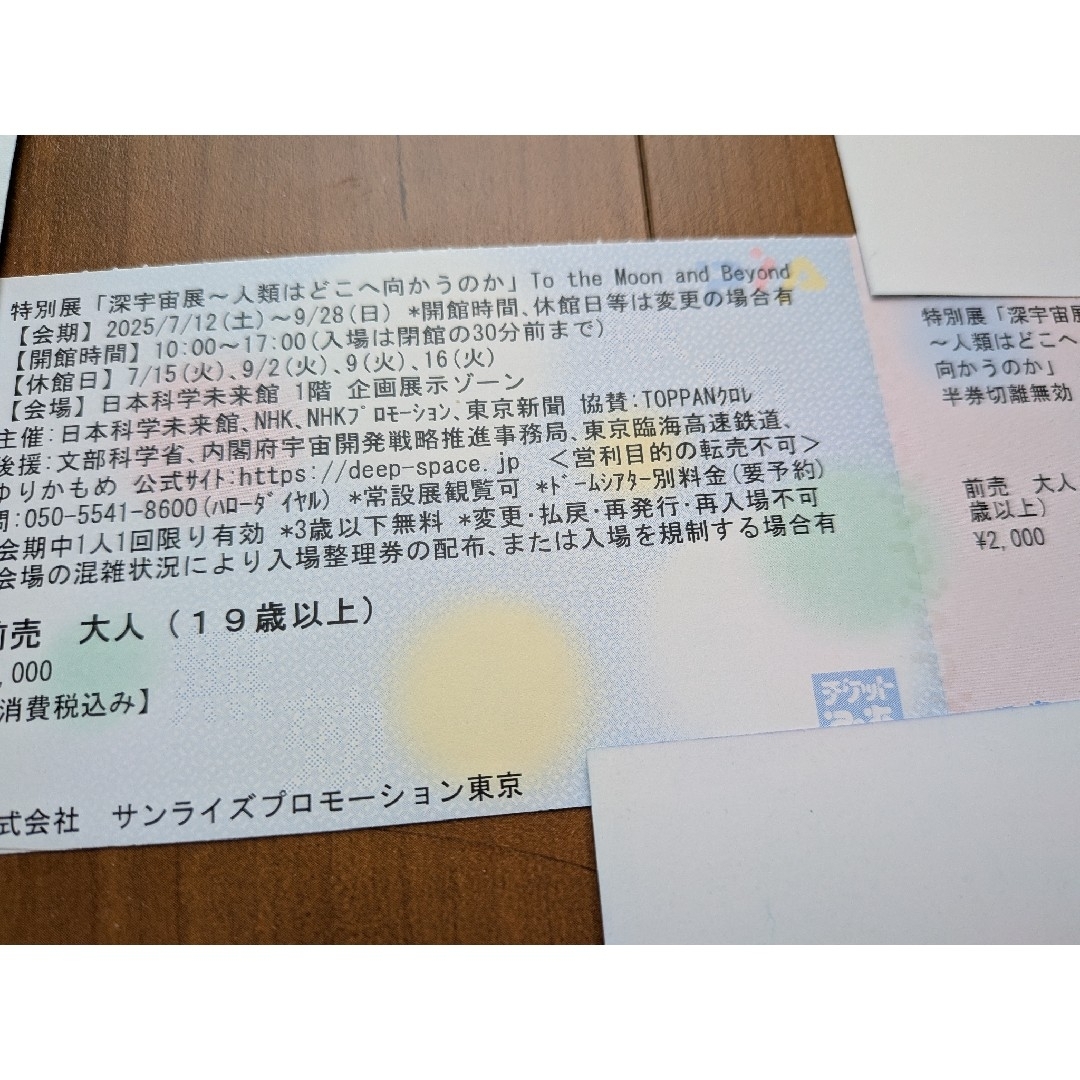 特別展「深宇宙展～人類はどこへ向かうのか」To the Moon and Beyond
【会期】2025/7/12(土)～9/28(日) *開館時間、休館日等は変更の場合有
【開館時間】10:00～17:00(入場は閉館の30分前まで)
【休館日】7/15(火)、9/2(火)、9(火)、16(火)
【会場】日本科学未来館 1階 企画展示ゾーン
主催:日本科学未来館、NHK、NHKﾌﾟﾛﾓｰｼｮﾝ、東京新聞 協賛:TOPPANｸﾛﾚ
後援:文部科学省、内閣府宇宙開発戦略推進事務局、東京臨海高速鉄道、
ゆりかもめ 公式ｻｲﾄ:https://deep-space.jp ＜営利目的の転売不可＞
問:050-5541-8600(ﾊﾛｰﾀﾞｲﾔﾙ) *常設展観覧可 *ﾄﾞｰﾑｼｱﾀｰ別料金(要予約)
会期中1人1回限り有効 *3歳以下無料 *変更・払戻・再発行・再入場不可
会場の混雑状況により入場整理券の配布、または入場を規制する場合有
前売 大人（１９歳以上）
,000
消費税込み】
式会社 サンライズプロモーション東京
チケット
特別展「深宇宙展
～人類はどこへ
向かうのか」
半券切離無効
前売 大人
歳以上）
¥2,000